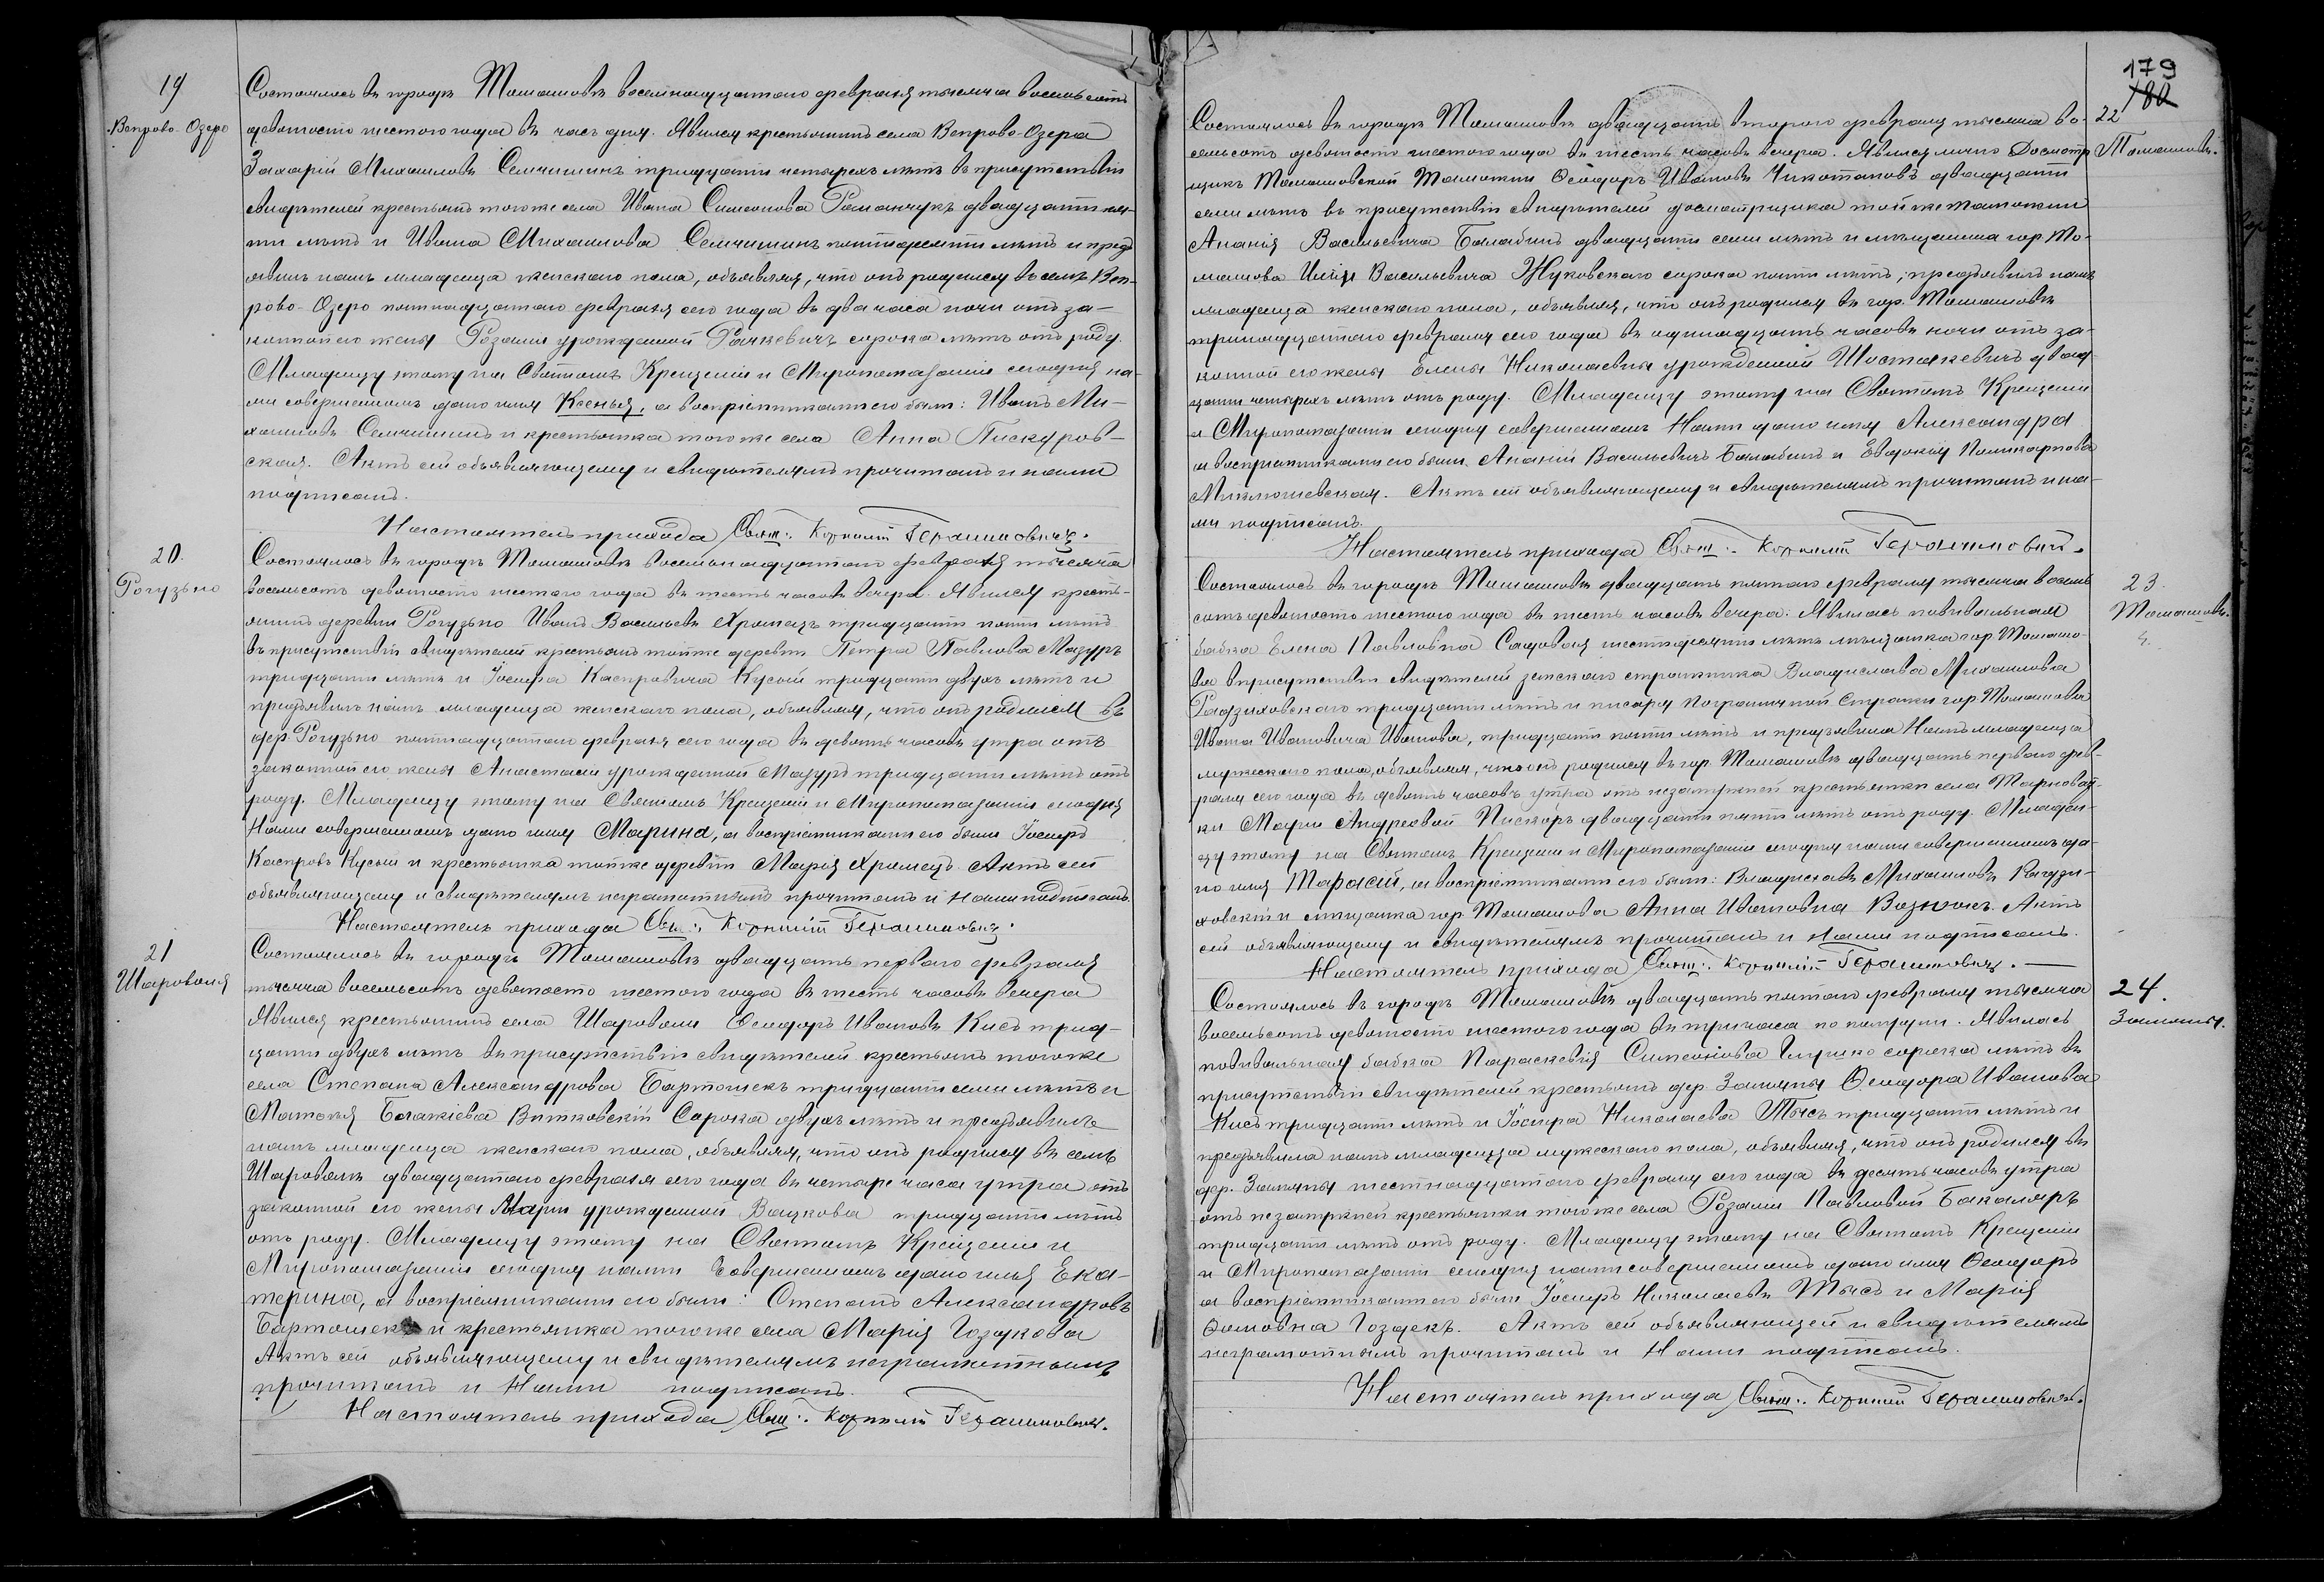 19
Вепрово-Озеро
Состоялось въ городѣ Томашовѣ восемнадцатаго февраля тысяча восемьсотъ
девяносто шестого года въ часъ дня. Явился крестьянинъ села Вепрово-Озера
Захарій Михаиловъ Семчишинъ тридцати четырехъ лѣтъ въ присутствіи
свидѣтелей крестьянъ того же села Ивана Симеонова Романчукъ двадцати пя-
ти лѣтъ и Ивана Михаилова Семчишинъ пятидесяти лѣтъ и предъ
явилъ намъ младенца женскаго пола, объявляя, что онъ родился въ селѣ Веп-
рово-Озеро пятнадцатаго февраля сего года въ два часа ночи отъ за-
конной его жены Розаліи урожденной Рачкевичъ сорока лѣтъ отъ роду.
Младенцу этому на Святомъ Крещеніи и Миропомазаніи сегодня на-
ми совершенномъ дано имя Ксенья, а воспріемниками его были: Иванъ Ми-
хаиловъ Семчишинъ и крестьянка того же села Анна Пискуров-
ская. Актъ сей объявляющему и свидѣтелямъ прочитанъ и нами
подписанъ.
Настоятель прихода Свящ: Корнилій Герасимовичъ.
20.
Рогузьно
Состоялось въ городѣ Томашовѣ восемьнадцатаго февраля тысяча
восемьсотъ девяносто шестого года въ шесть часовъ вечера. Явился кресть-
янинъ деревни Рогузьно Иванъ Васильевъ Хромецъ тридцати пяти лѣтъ
въ присутствіи свидѣтелей крестьянъ той же деревни Петра Павлова Мазуръ
тридцати лѣтъ и Іосифа Каспровича Кусый тридцати двухъ лѣтъ и
предъявилъ намъ младенца женскаго пола, объявляя, что онъ родился въ
дер. Рогузьно пятнадцатаго февраля сего года въ девять часовъ утра отъ
законной его жены Анастасіи урожденной Мазуръ тридцати лѣтъ отъ
роду. Младенцу этому на Святомъ Крещеніи и Миропомазаніи сегодня
Нами совершенномъ дано имя Марина, а воспріемниками его были Іосифъ
Каспровъ Кусый и крестьянка той же деревни Марія Хромецъ. Актъ сей
объявляющему и свидѣтелямъ неграмотнымъ прочитанъ и Нами подписанъ.
Настоятель прихода Свящ: Корнилій Герасимовичъ.
21
Шароволя
Состоялось въ городѣ Томашовѣ двадцать перваго февраля
тысяча восемьсотъ девяносто шестого года въ шесть часовъ вечера
Явился крестьянинъ села Шароволи Ѳеодоръ Ивановъ Кисъ трид-
цати двухъ лѣтъ въ присутствіи свидѣтелей крестьянъ того же
села Степана Александрова Бартошекъ тридцати семи лѣтъ и
Матвѣя Витковскій Сорока двухъ лѣтъ и предъявилъ
намъ младенца женскаго пола, объявляя, что онъ родился въ селѣ
Шароволѣ двадцатаго февраля сего года въ четыре часа утра отъ
законной его жены Маріи урожденной Вацкова тридцати лѣтъ
отъ роду. Младенцу этому на Святомъ Крещеніи и
Миропомазаніи сегодня нами совершенномъ дано имя Ека-
терина, а воспріемниками его были: Степанъ Александровъ
Бартошекъ и крестьянка того же села Марія Гоздкова
Актъ сей объявляющему и свидѣтелямъ неграмотнымъ
прочитанъ и Нами подписанъ.
Настоятель прихода Свящ: Корнилій Герасимовичъ.
179
180
22
Томашовъ.
Состоялось въ городѣ Томашовѣ двадцать второго февраля тысяча во-
семьсотъ девяносто шестого года въ шесть часовъ вечера. Явился лично Досмотр
щикъ Томашовской Таможни Ѳеодоръ Ивановъ Чикотановъ двадцати
семи лѣтъ въ присутствіи свидѣтелей досмотрщика той же таможни
Ананія Васильевича Балабинъ двадцати семи лѣтъ и мѣщанина гор. То-
машова Иліи Васильевича Жуковскаго сорока пяти лѣтъ, предъявилъ намъ
младенца женскаго пола, объявляя, что онъ родился въ гор. Томашовѣ
тринадцатаго февраля сего года въ одинадцать часовъ ночи отъ за-
конной его жены Елены Николаевны урожденной Шостакевичъ двад-
цати четырехъ лѣтъ отъ роду. Младенцу этому на Святомъ Крещеніи
и Миропомазаніи сегодня совершенномъ Нами дано имя Александра
а воспріемниками его были Ананій Васильевичъ Балабинъ и Евдокія Поликарпова
Миклошевская. Актъ сей объявляющему и свидѣтелямъ прочитанъ и на-
ми подписанъ.
Настоятель прихода Свящ: Корнилій Герасимовичъ.
23.
Томашовъ.
Состоялось въ городѣ Томашовѣ двадцать пятаго февраля тысяча восемь
сотъ девяносто шестого года въ шесть часовъ вечера. Явилась повивальная
бабка Елена Павловна Садовая шестидесяти лѣтъ мѣщанка гор. Томашо-
ва въ присутствіи свидѣтелей земскаго стражника Владислава Михаилова
Радзиховскаго тридцати лѣтъ и писаря Пограничной Стражи гор. Томашова
Ивана Ивановича Иванова, тридцати пяти лѣтъ и предъявила Намъ младенца
мужескаго пола, объявляя, что онъ родился въ гор. Томашовѣ двадцать перваго фев-
раля сего года въ девять часовъ утра отъ незамужней крестьянки села Тарноват-
ки Маріи Андреевой Пискоръ двадцати пяти лѣтъ отъ роду. Младен-
цу этому на Святомъ Крещеніи и Миропомазаніи сегодня нами совершенномъ да-
но имя Тарасій, а воспріемниками его были: Владиславъ Михаиловъ Радзи-
ховскій и мѣщанка гор. Томашова Анна Ивановна Вознюкъ. Актъ
сей объявляющему и свидѣтелямъ прочитанъ и Нами подписанъ.
Настоятель прихода Свящ: Корнилій Герасимовичъ.
24.
Замяны.
Состоялось въ городѣ Томашовѣ двадцать пятаго февраля тысяча
восемьсотъ девяносто шестого года въ три часа по полудни. Явилась
повивальная бабка Параскевія Симеонова Глушко сорока лѣтъ въ
присутствіи свидѣтелей крестьянъ дер. Замяны Ѳеодора Иванова
Кисъ тридцати лѣтъ и Іосифа Николаева Тысъ тридцати лѣтъ и
предъявила намъ младенца мужескаго пола, объявляя, что онъ родился въ
дер. Замяны шестнадцатаго февраля сего года въ десять часовъ утра
отъ незамужней крестьянки того же села Розаліи Павловой Бакаляръ
тридцати лѣтъ отъ роду. Младенцу этому на Святомъ Крещеніи
и Миропомазаніи сегодня нами совершенномъ дано имя Ѳеодоръ
а воспріемниками его были Іосифъ Николаевъ Тысъ и Марія
Ѳомовна Гоздекъ. Актъ сей объявляющей и свидѣтелямъ
неграмотнымъ прочитанъ и Нами подписанъ.
Настоятель прихода Свящ: Корнилій Герасимовичъ.